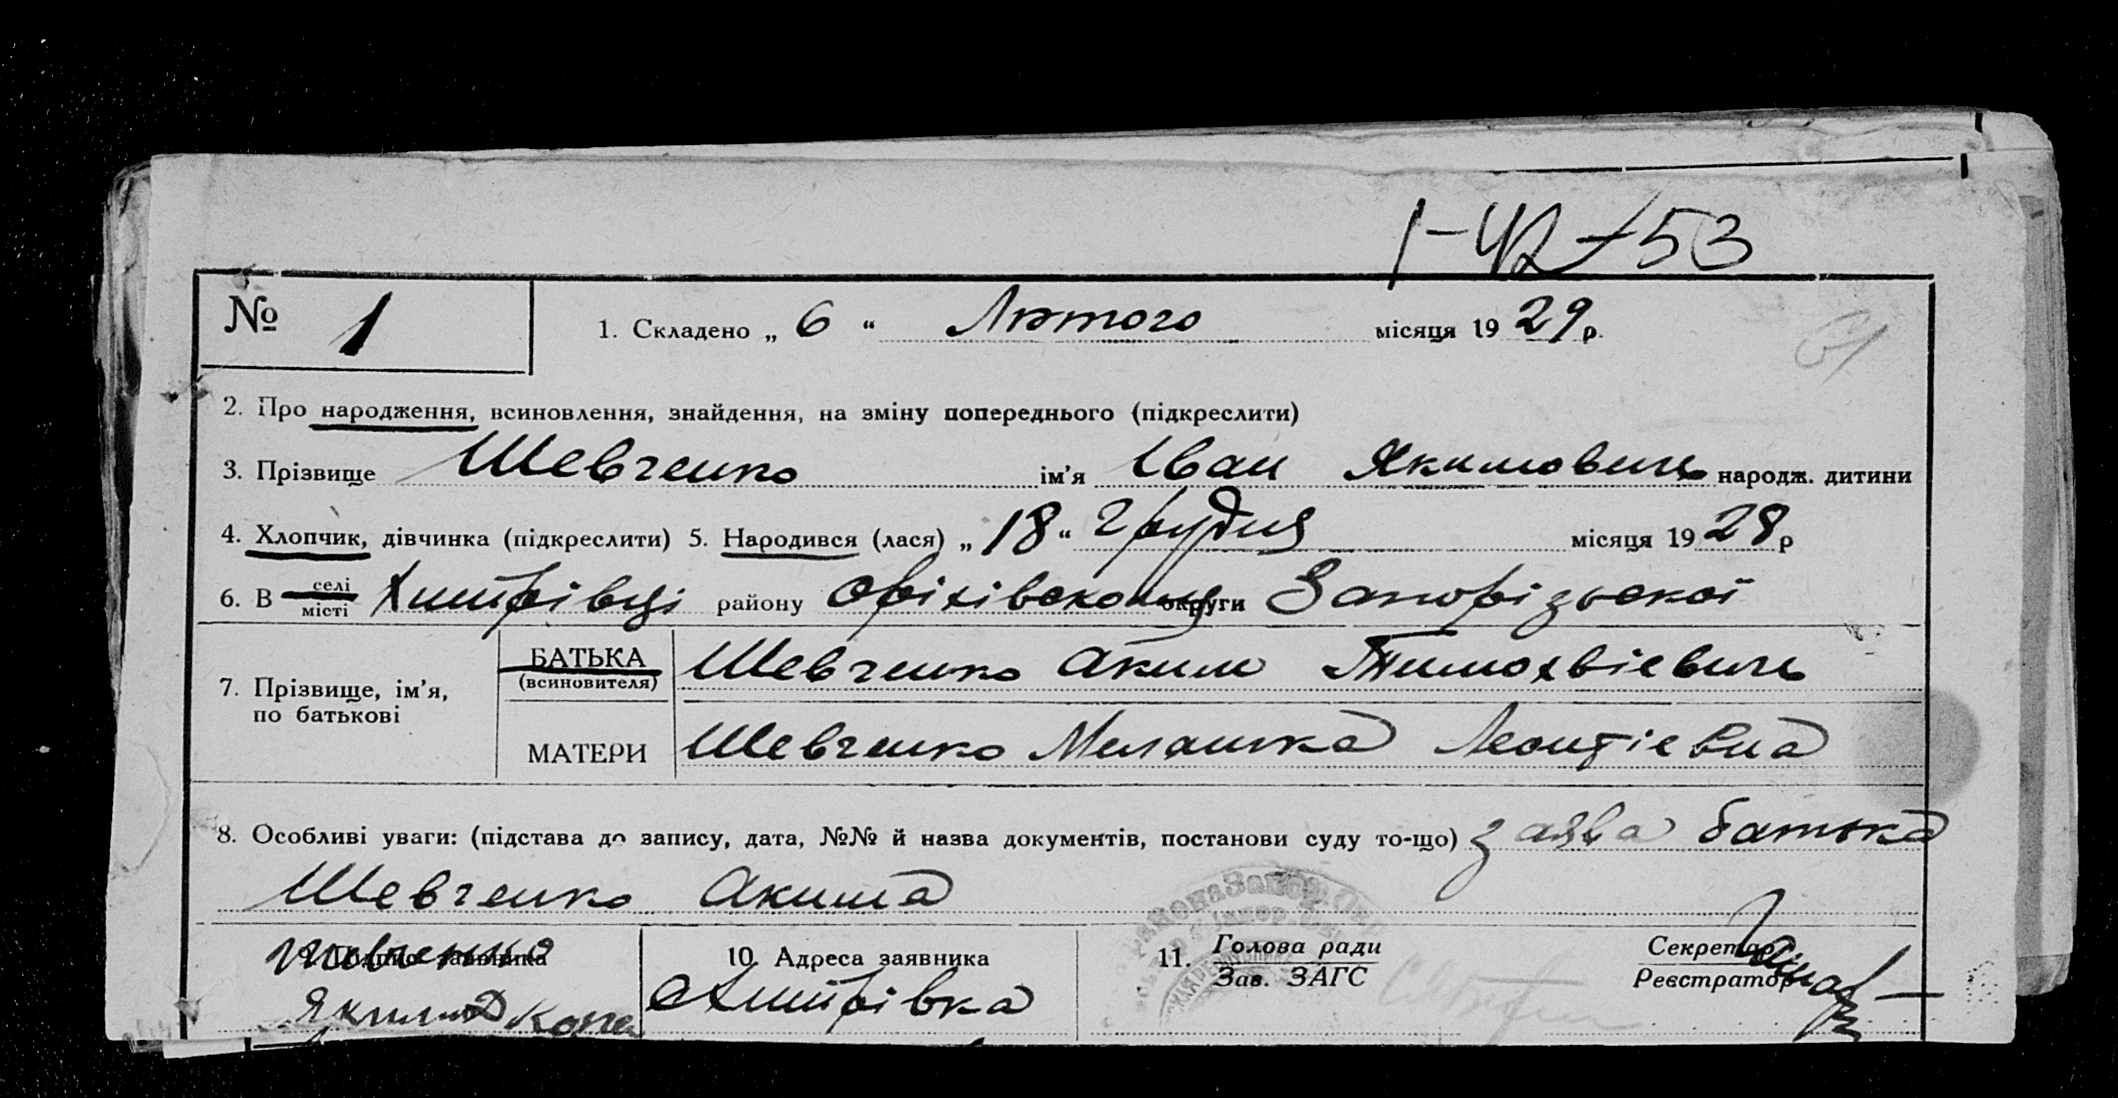 1-42-53
№ 1
1. Складено „ 6 “ Лютого місяця 1929 р.
61
2. Про народження, всиновлення, знайдення, на зміну попереднього (підкреслити)
3. Прізвище Шевченко ім'я Іван Якимович народж. дитини
4. Хлопчик, дівчинка (підкреслити) 5. Народився (лася) „ 18 “ Грудня місяця 1928 р
6. В селі
місті району Оріхівського округи Запорізької
7. Прізвище, ім'я, по батькові
БАТЬКА (всиновителя) Шевченко Аким
МАТЕРИ Шевченко Мелашка Леонтієвна
8. Особливі уваги: (підстава до запису, дата, №№ й назва документів, постанови суду то-що) заява батька
Шевченко Акима
9. Підпис заявника
10. Адреса заявника
11. Голова ради
Зав. ЗАГС
Секретар
Реєстратор